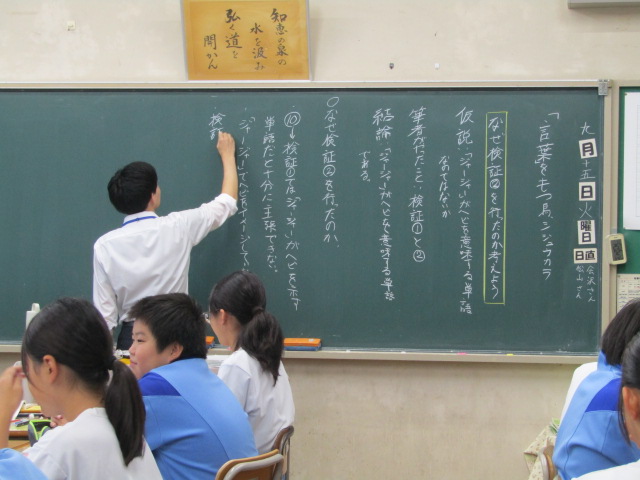 知恵の泉の
水を汲み
弘く道を
聞かん
九月十五日火曜日
日直
会沢さん
松山さん
「言葉をもつ鳥、シジュウカラ
なぜ検証②を行ったのか考えよう
仮説:「ジャージャー」がヘビを意味する単語
なのではないか
筆者が行ったこと:検証①と②
結論:「ジャージャー」がヘビを意味する単語
である。
○なぜ検証②を行ったのか。
検証①では「ジャージャー」がヘビを示す
単語だと十分に主張できない。
・「ジャージャー」でヘビをイメージして
・検証